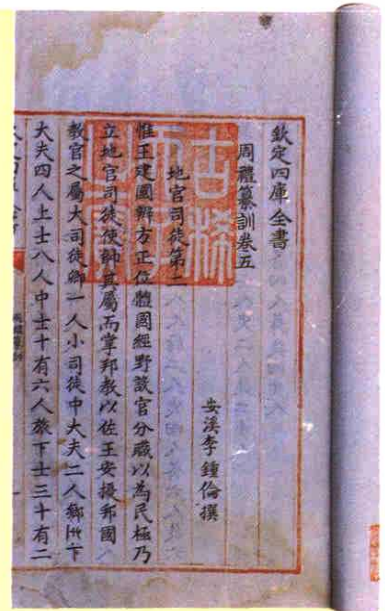 欽定四庫全書
周禮纂訓卷五
安溪李鍾倫撰
地官司徒第二
惟王建國辨方正位體國經野設官分職以為民極乃
立地官司徒使帥其屬而掌邦教以佐王安擾邦國
教官之屬大司徒卿一人小司徒中大夫二人鄉師下
大夫四人上士八人中士十有六人旅下士三十有二